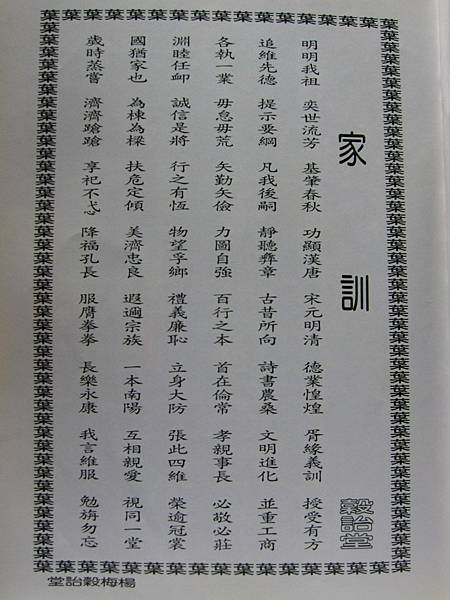 家訓
穀詒堂
明明我祖 奕世流芳 基肇春秋 功顯漢唐 宋元明清 德業惶煌 胥緣義訓 授受有方
追維先德 提示要綱 凡我後嗣 靜聽彝章 古昔所向 詩書農桑 文明進化 並重工商
各執一業 毋怠毋荒 矢勤矢儉 力圖自強 百行之本 首在倫常 孝親事長 必敬必莊
淵睦任卹 誠信是將 行之有恆 物望孚鄉 禮義廉恥 立身大防 張此四維 榮逾冠裳
國猶家也 為棟為樑 扶危定傾 美濟忠良 遐邇宗族 一本南陽 互相親愛 視同一堂
歲時蒸嘗 濟濟蹌蹌 享祀不忒 降福孔長 服膺拳拳 長樂永康 我言維服 勉旃勿忘
楊梅穀詒堂